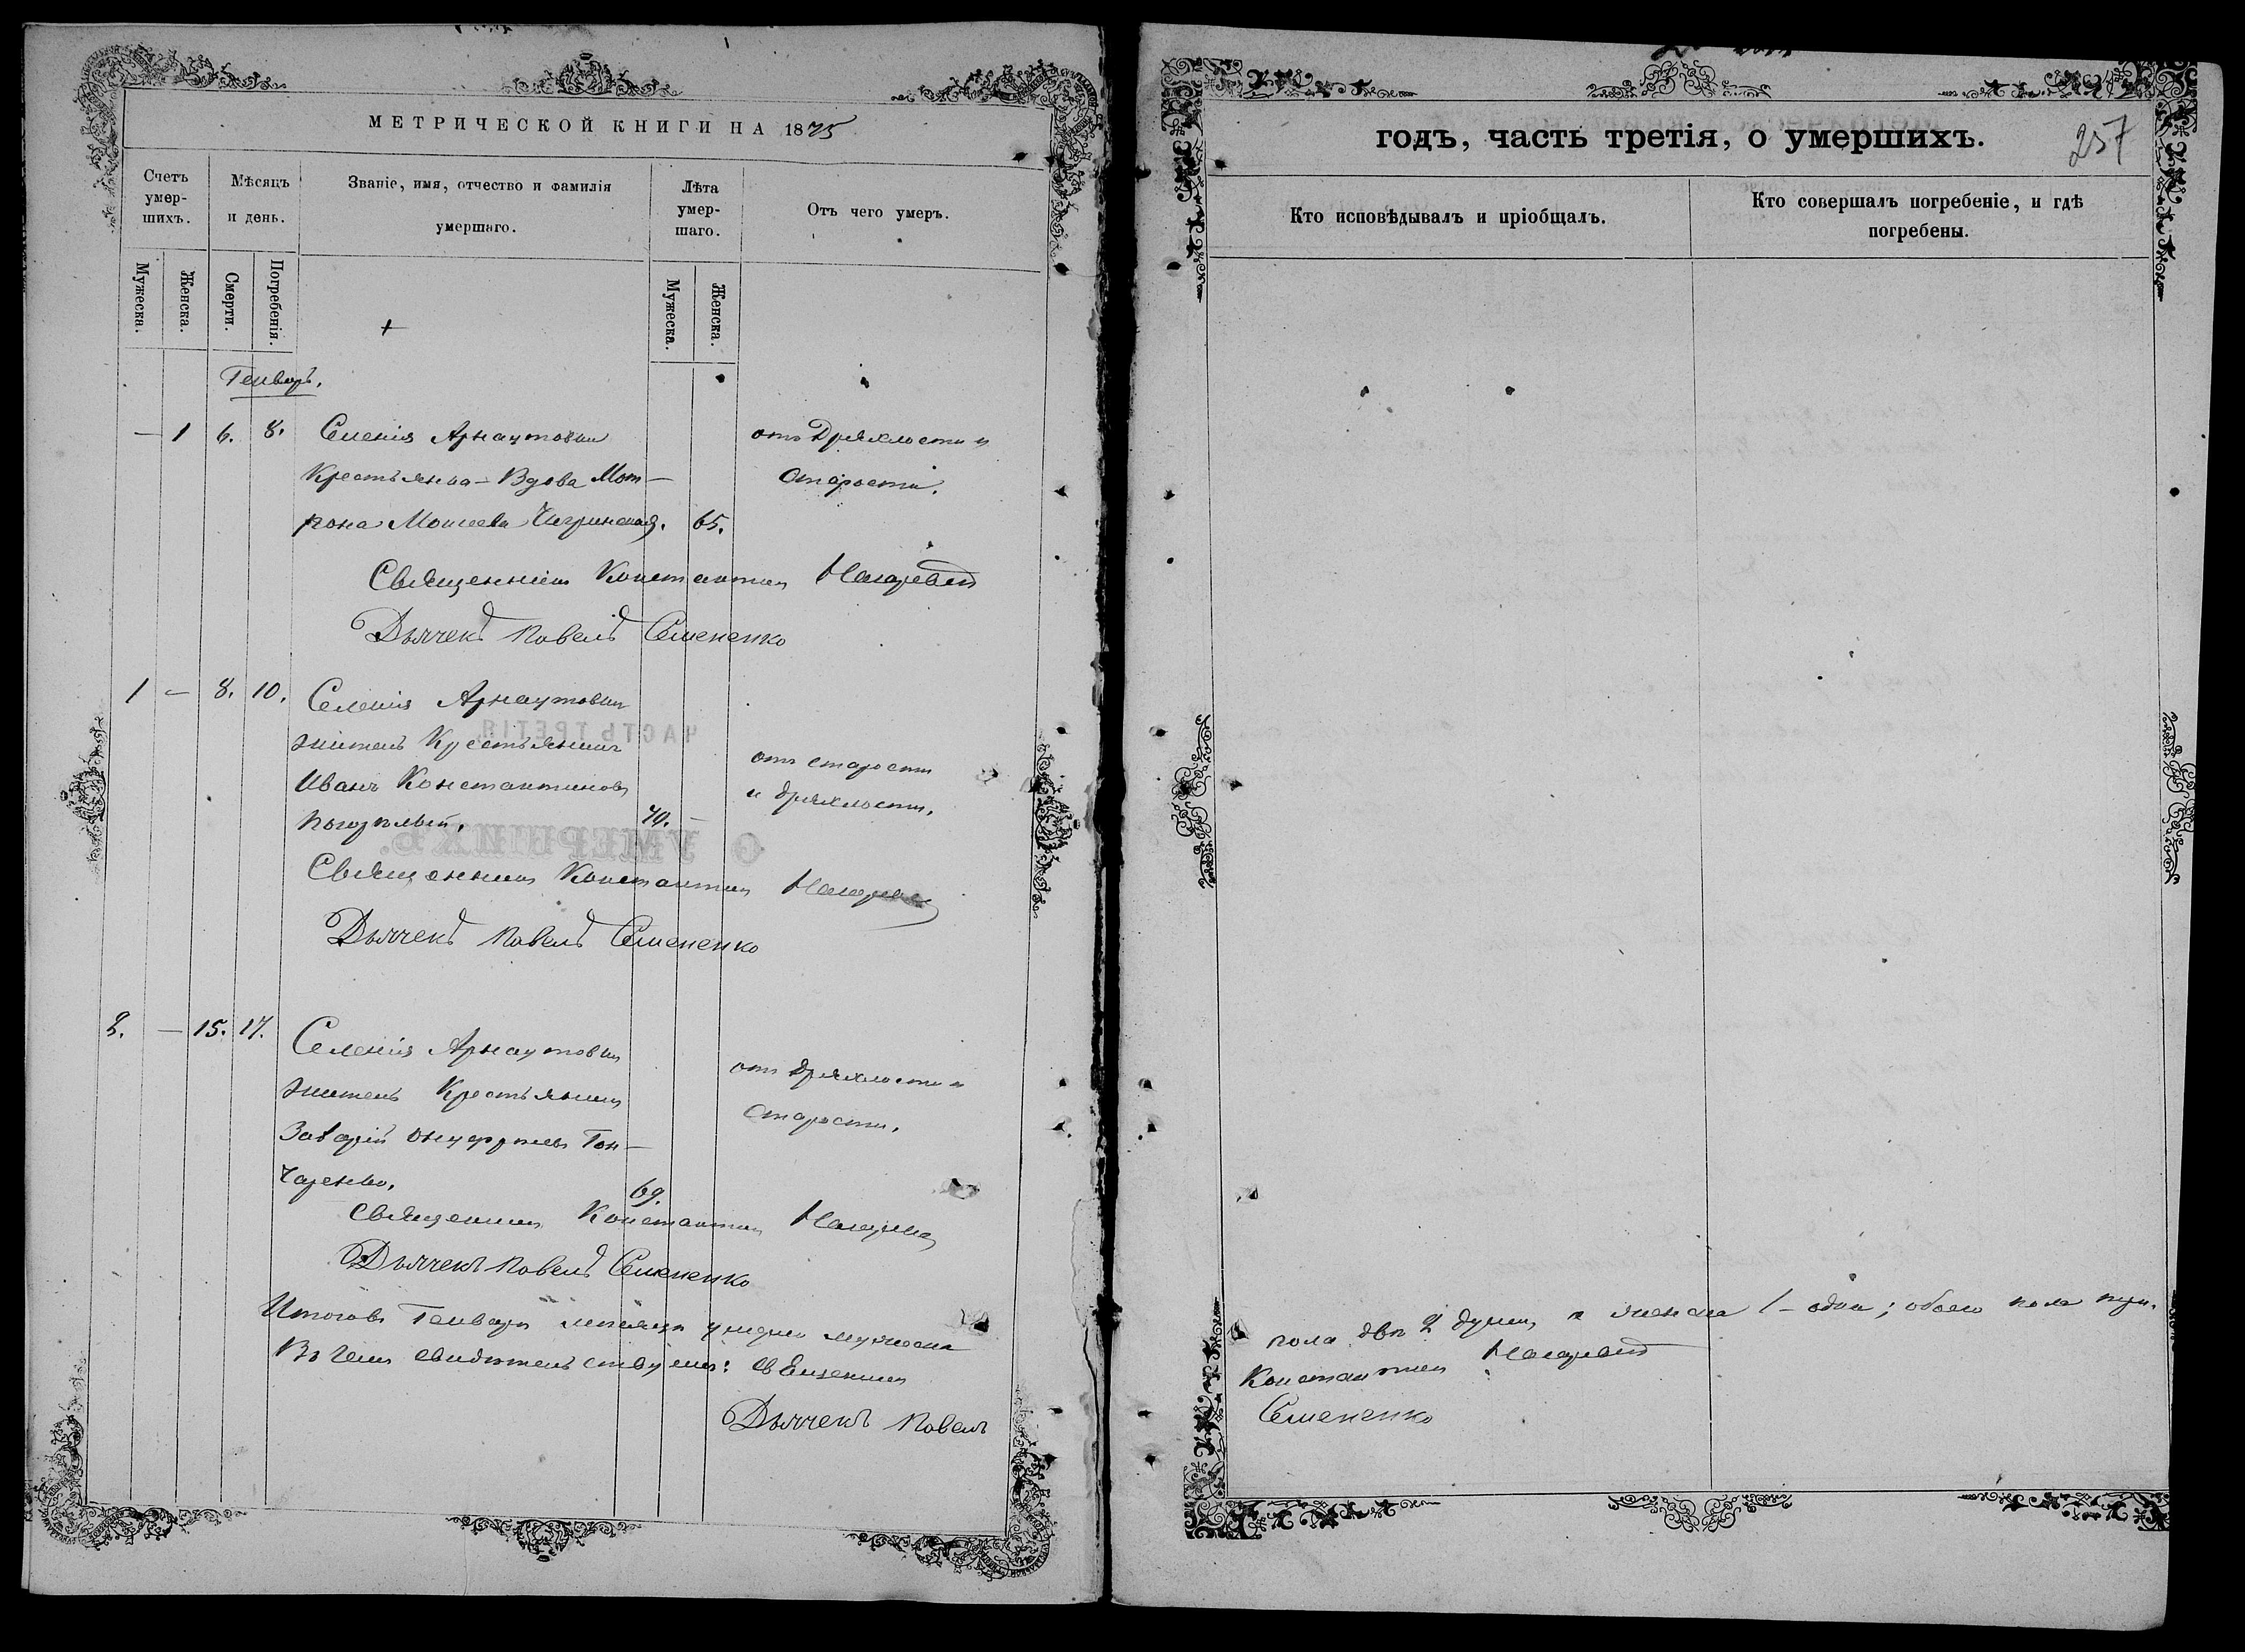 МЕТРИЧЕСКОЙ КНИГИ НА 1875
Счетъ умер-шихъ.
Мѣсяцъ и день.
Званіе, имя, отчество и фамилія умершаго.
Лѣта умер-шаго.
Отъ чего умеръ.
Мужеска.
Женска.
Смерти.
Погребенія.
Мужеска.
Женска.
Генварь.
— 1 6. 8. Селенія Арнаутовки отъ дряхлости и
Крестьянка - Вдова Мот- старости.
рона Моисеева Чигринская. 65.
Священникъ Константин
Дьячекъ Павелъ Семененко
1 — 8. 10. Селенія Арнаутовки
житель Крестьянинъ отъ старости
Иванъ Константиновъ и дряхлости.
70. —
Священникъ Константин
Дьячекъ Павелъ Семененко
2. — 15. 17. Селенія Арнаутовки
житель Крестьянинъ отъ дряхлости и
Онуфріевъ Гон- старости.
чаренко. 69.
Священникъ Константин
Дьячекъ Павелъ Семененко
Итого въ Генварѣ мѣсяцѣ умерло мужеска
Въ чемъ свидѣтельствуемъ: Священникъ
Дьячекъ Павелъ
ЧАСТЬ ТРЕТІЯ,
О УМЕРШИХЪ.
годъ, часть третія, о умершихъ.
257
Кто исповѣдывалъ и пріобщалъ.
Кто совершалъ погребеніе, и гдѣ погребены.
пола двѣ 2 души, а женска 1 - одна; обоего пола три.
Константин
Семененко